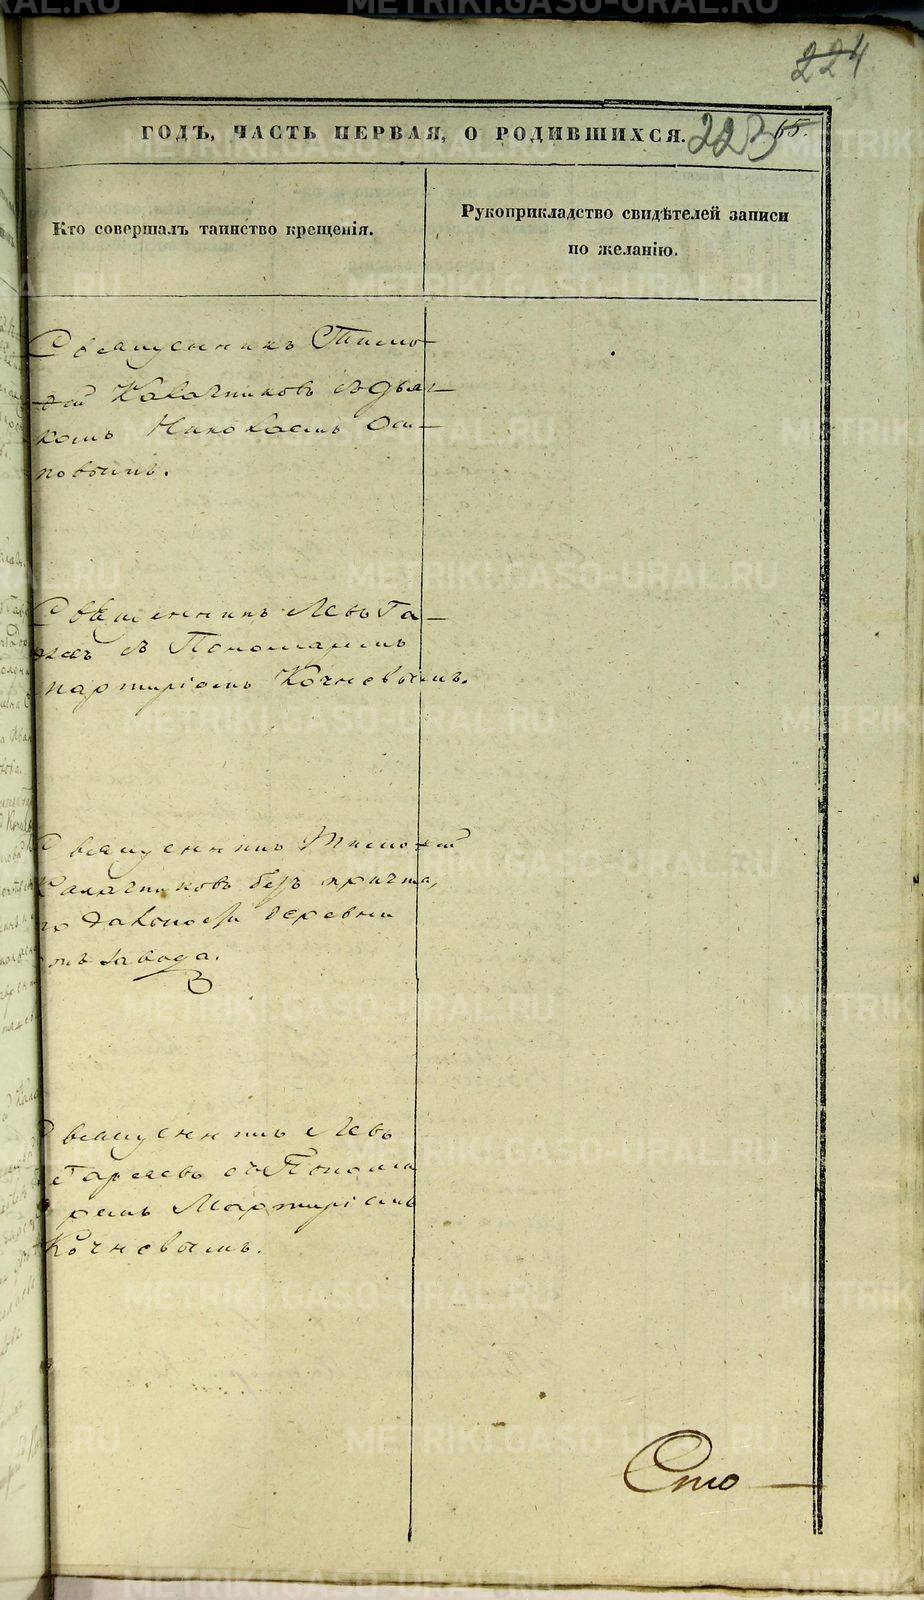 224
ГОДЪ, ЧАСТЬ ПЕРВАЯ, О РОДИВШИХСЯ.
223
65.
Кто совершалъ таинство крещенія.
Рукоприкладство свидѣтелей записи
по желанію.
Священникъ Тимо-
фей Калачниковъ съ дьяч-
комъ Николаемъ Оси-
повымъ.
Священникъ Левъ Га-
съ Пономаремъ
Мартиріемъ Кочневымъ.
Священникъ Тимофей
Калачниковъ безъ причта,
деревни
отъ завода.
Священникъ Левъ
съ Понома
ремъ Мартиріемъ
Кочневымъ.
Сто
METRIKI.GASO-URAL.RU